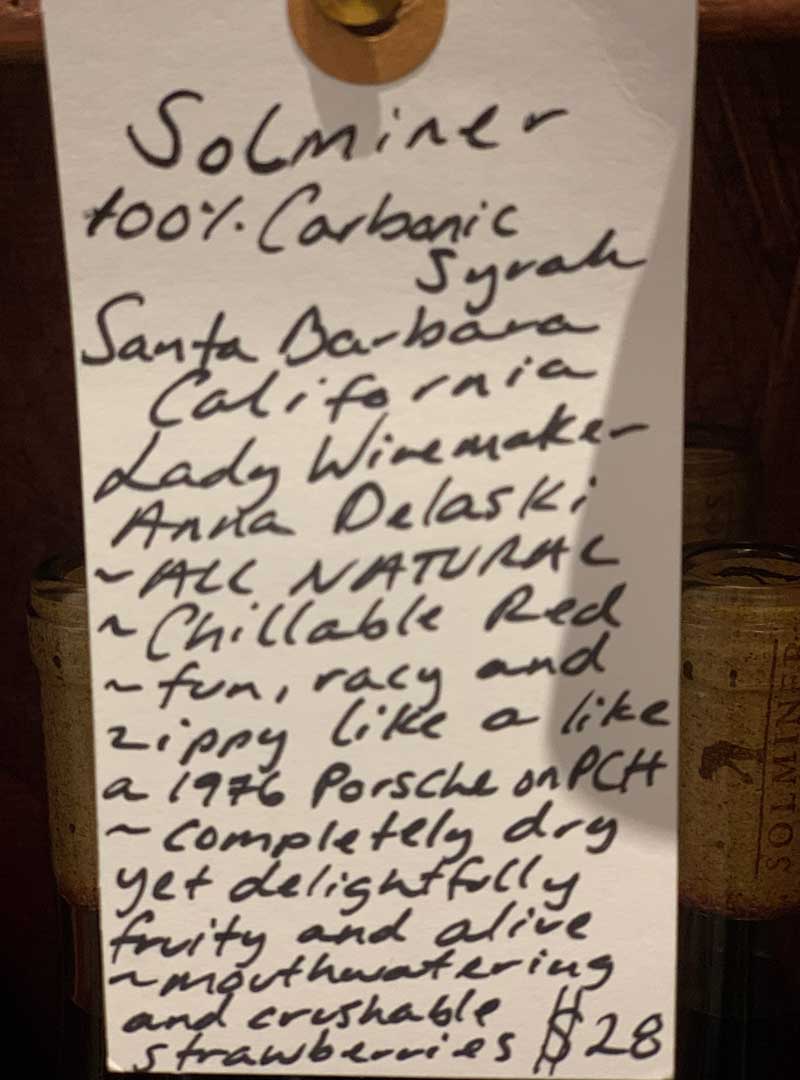 Solminer
100% Carbonic
Syrah
Santa Barbara
California
Lady Winemaker
Anna Delaski
~ ALL NATURAL
~ Chillable Red
~ fun, racy and
zippy like a like
a 1976 Porsche on PCH
~ completely dry
yet delightfully
fruity and alive
~ mouthwatering
and crushable
strawberries $28
SOLMINER